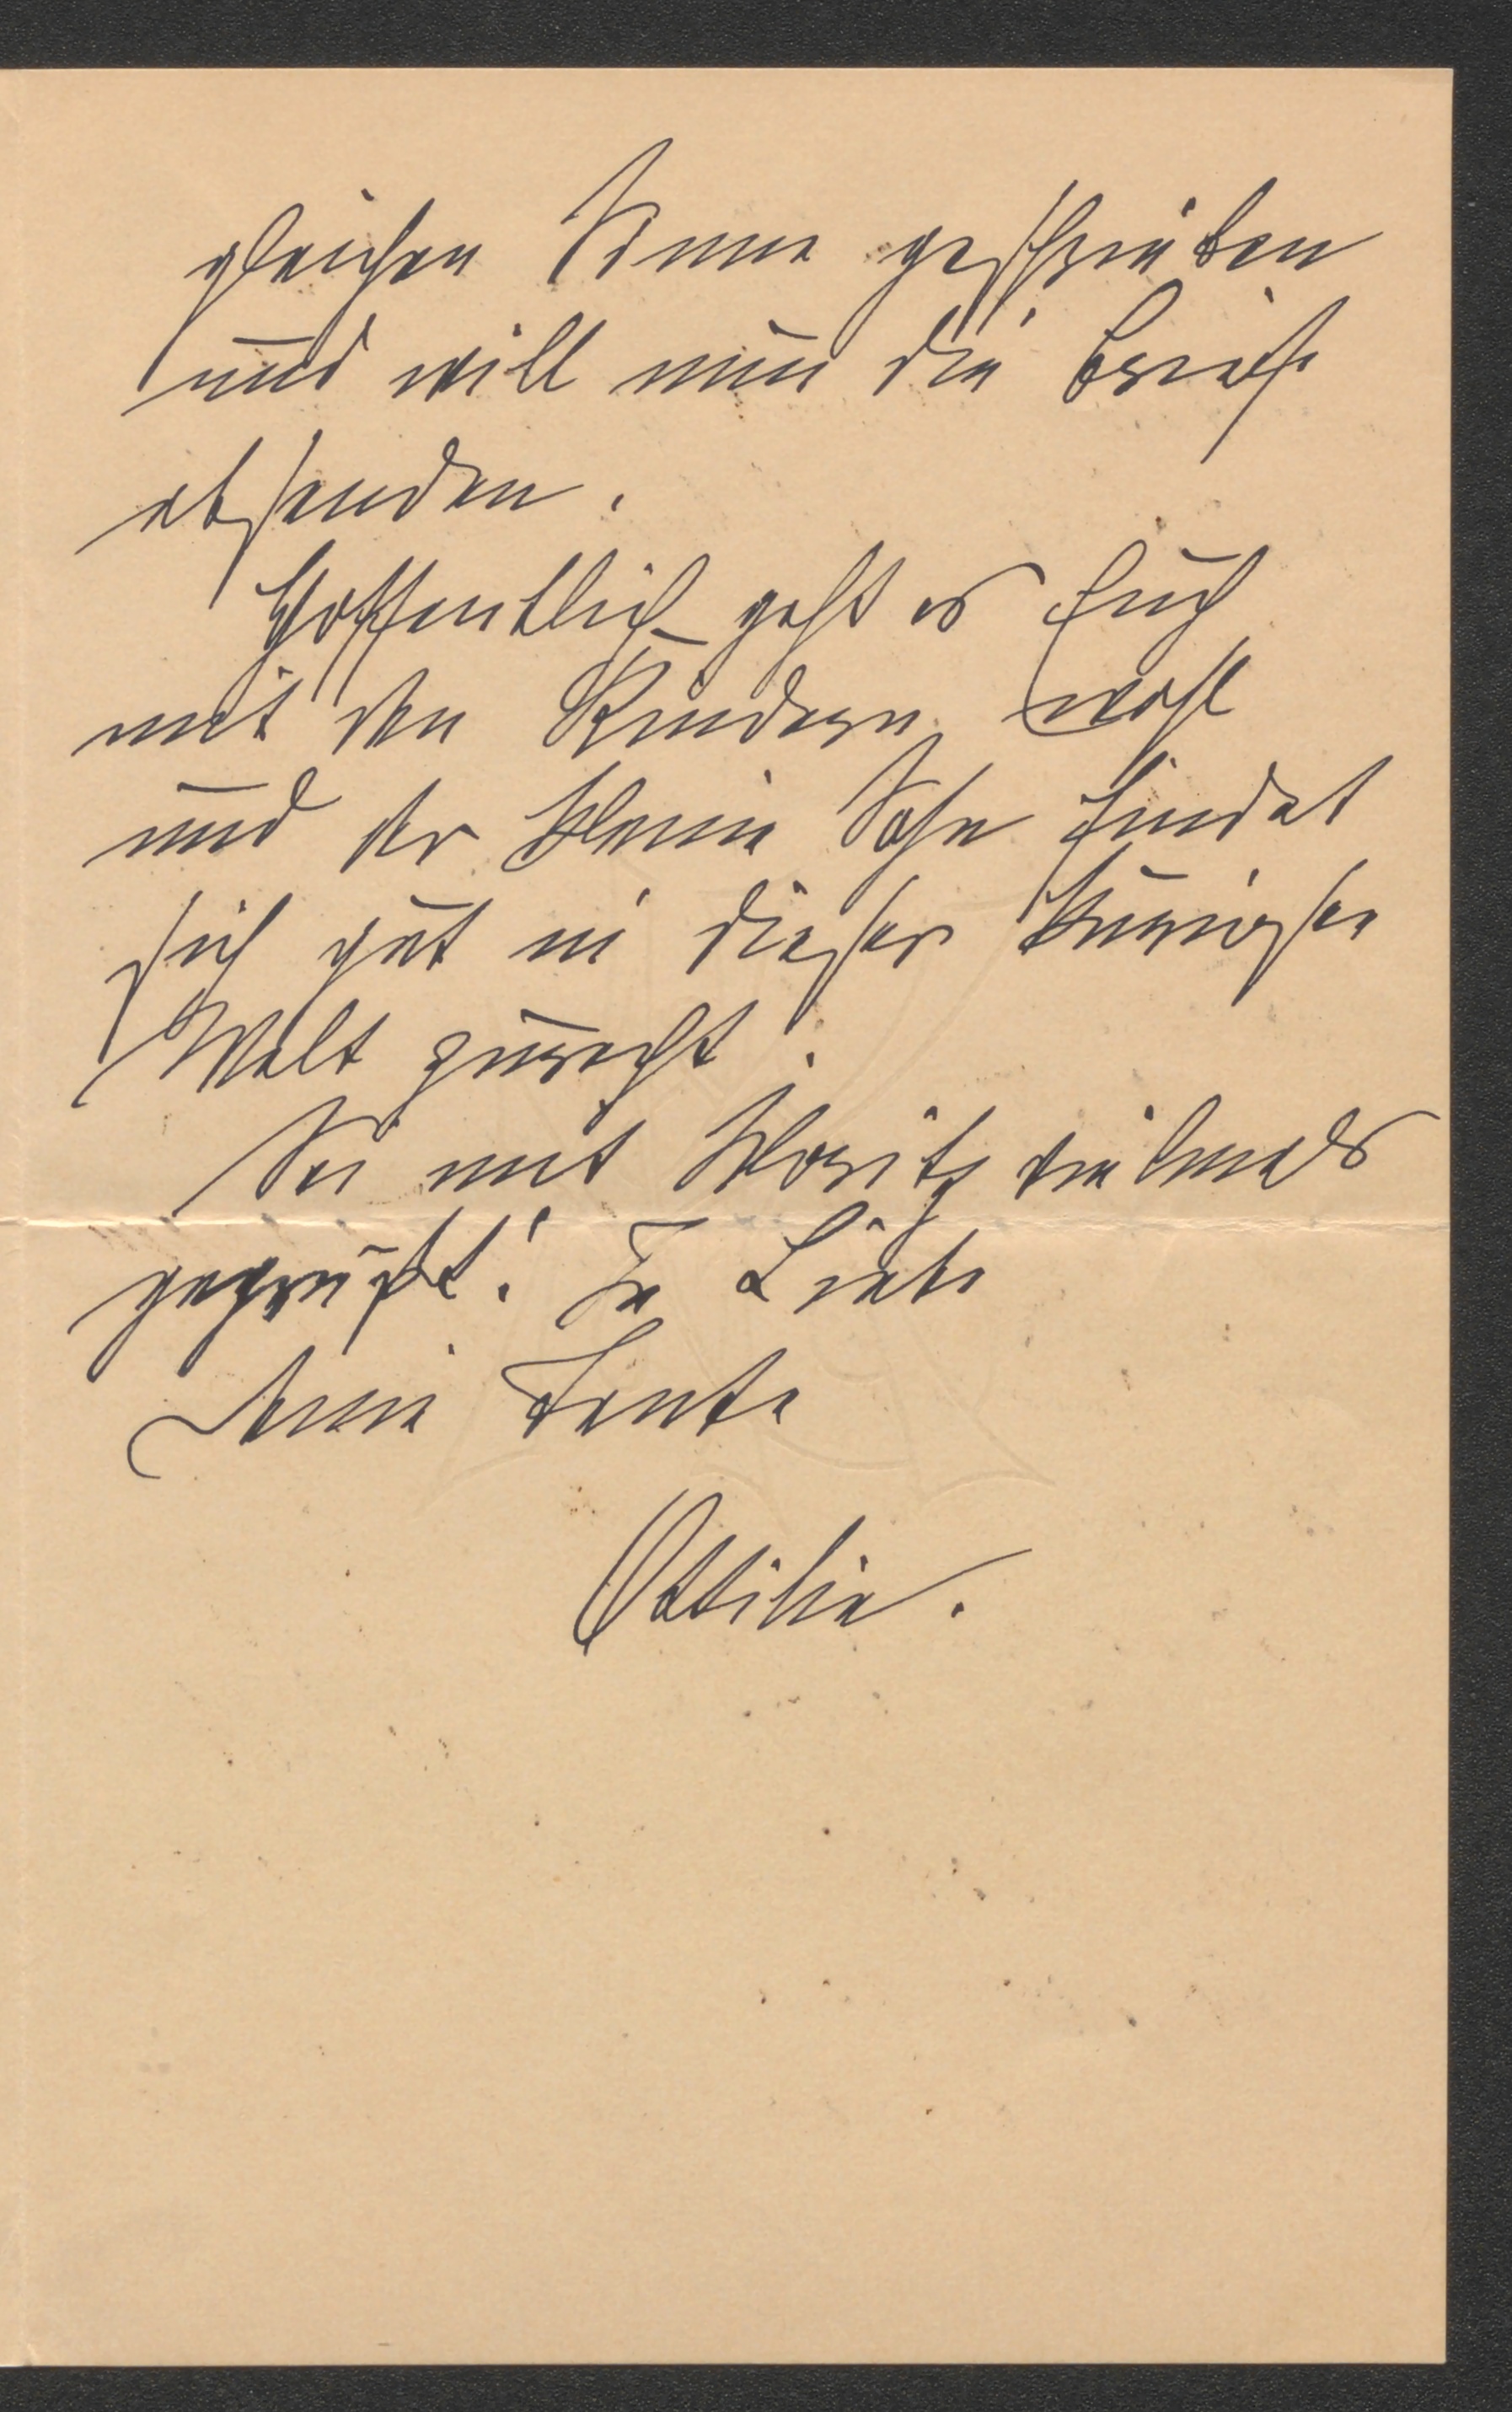 gleichen Sinne geschrieben
und will nun die Briefe
absenden.
Hoffentlich geht es Euch
mit den Kindern wohl
und der kleine Sohn findet
sich gut in dieser kuriosen
Welt zurecht.
Sei mit Moritz vielmals
gegrüßt! In Liebe
Deine Tante
Ottilie.